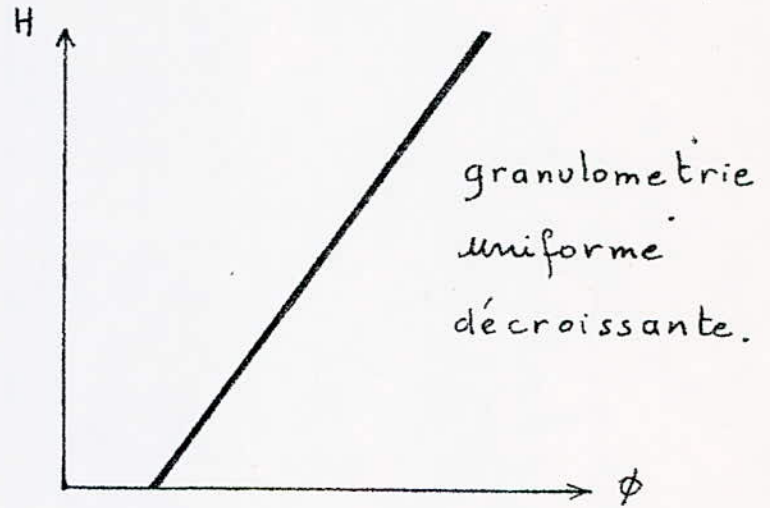 H
granulometrie
uniforme
décroissante.
φ